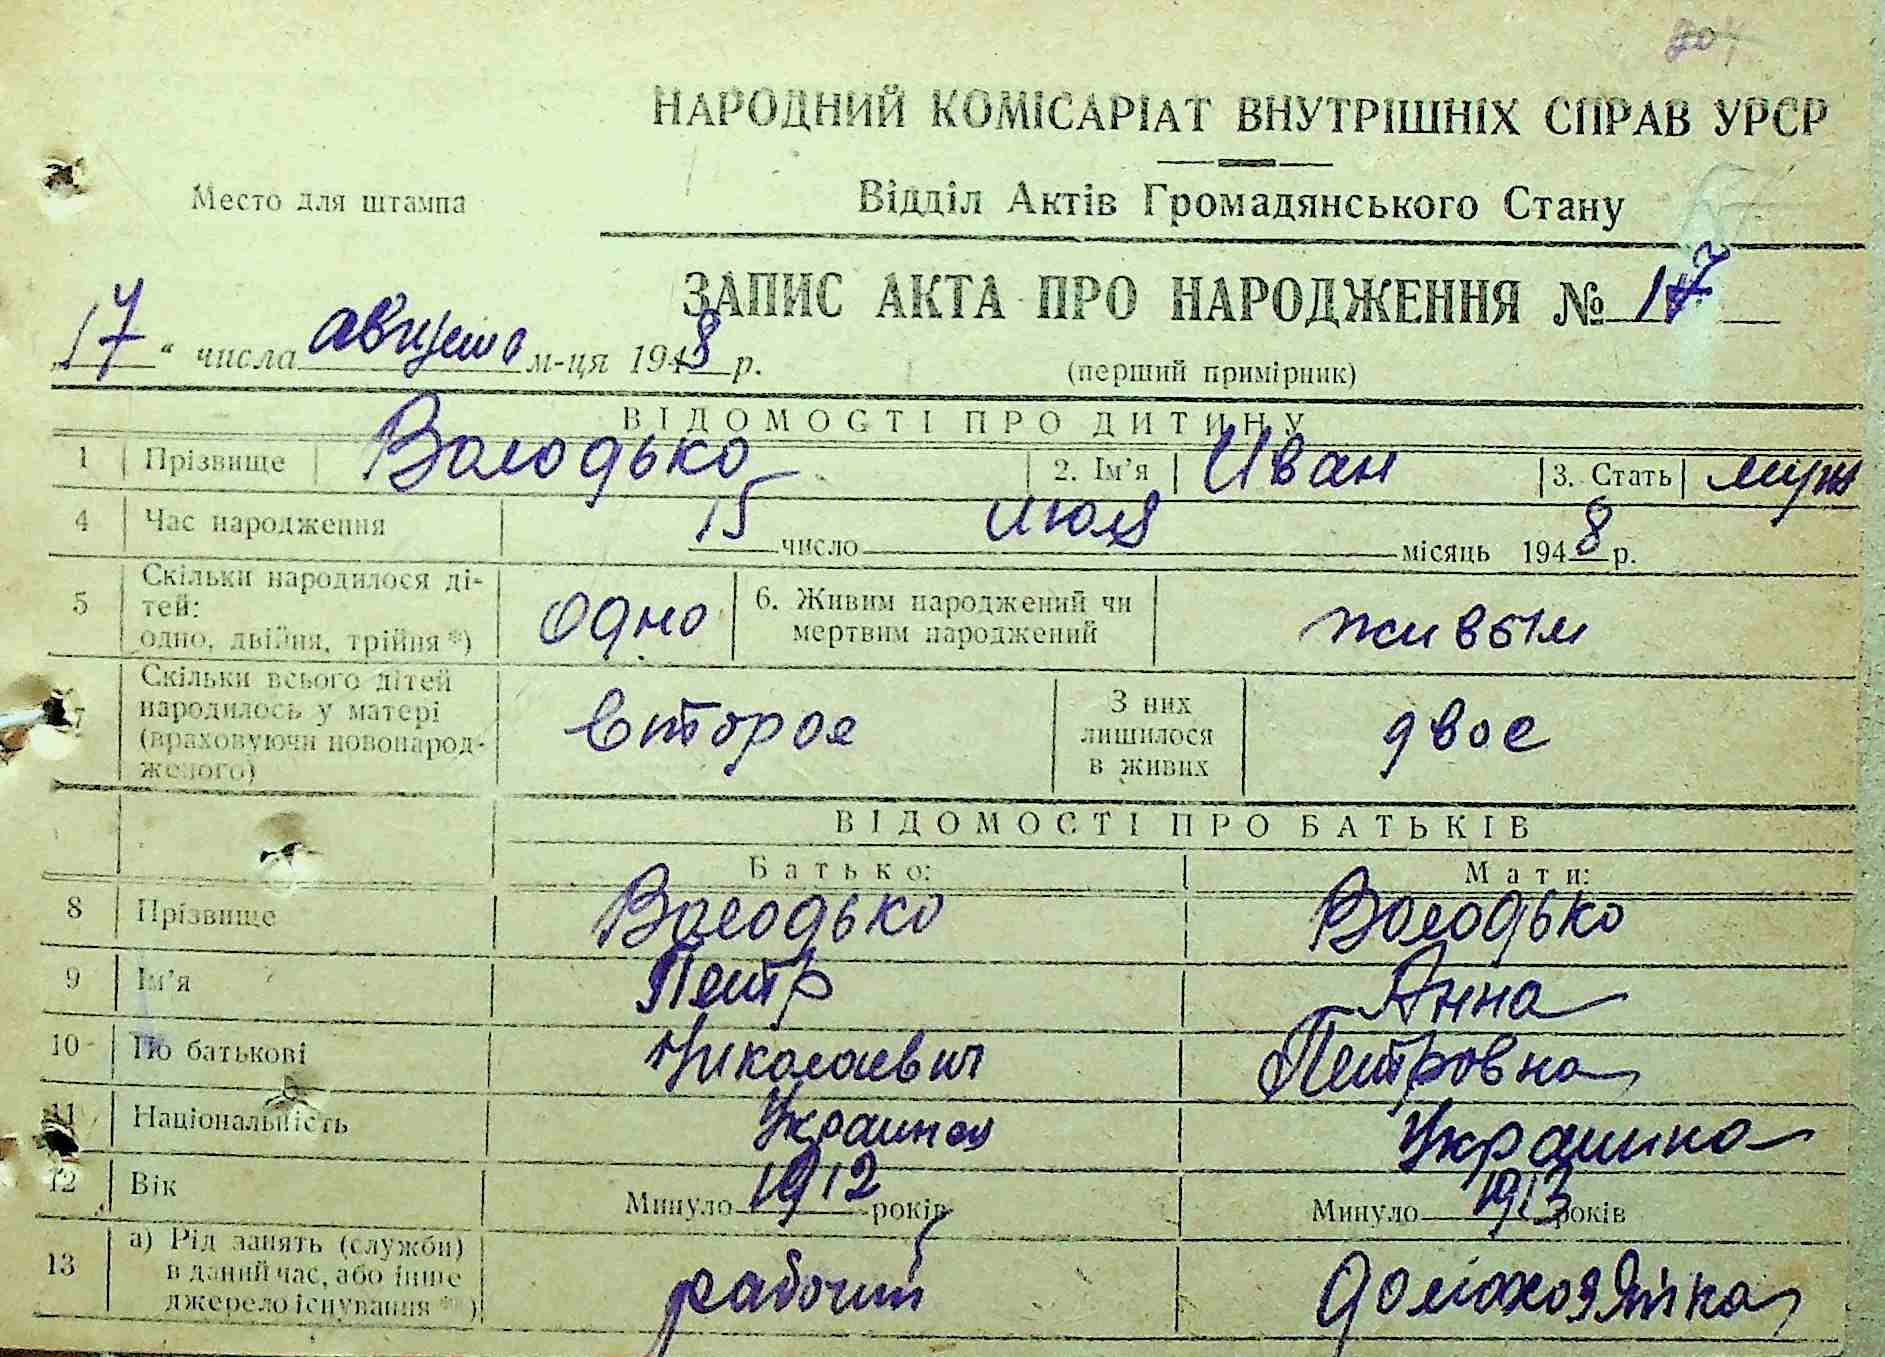 НАРОДНИЙ КОМІСАРІАТ ВНУТРІШНІХ СПРАВ УРСР
Место для штампа
Відділ Актів Громадянського Стану
ЗАПИС АКТА ПРО НАРОДЖЕННЯ № 17
17 " числа августа м-ця 1948 р.
(перший примірник)
ВІДОМОСТІ ПРО ДИТИНУ
1 Прізвище Володько 2. Ім'я Иван 3. Стать муж
4 Час народження 15 число июля місяць 1948 р.
5 Скільки народилося ді-
тей:
одно, двійня, трійня *) одно 6. Живим народжений чи
мертвим народжений живым
7 Скільки всього дітей
народилось у матері
(враховуючи новонарод-
женого) второе З них
лишилося
в живих двое
ВІДОМОСТІ ПРО БАТЬКІВ
Батько: Мати:
8 Прізвище Володько Володько
9 Ім'я Петр Анна
10 По батькові Николаевич Петровна
11 Національність Украинец Украинка
12 Вік Минуло 1912 років Минуло 1913 років
13 а) Рід занять (служби)
в даний час, або інше
джерело існування * ) рабочий домохозяйка